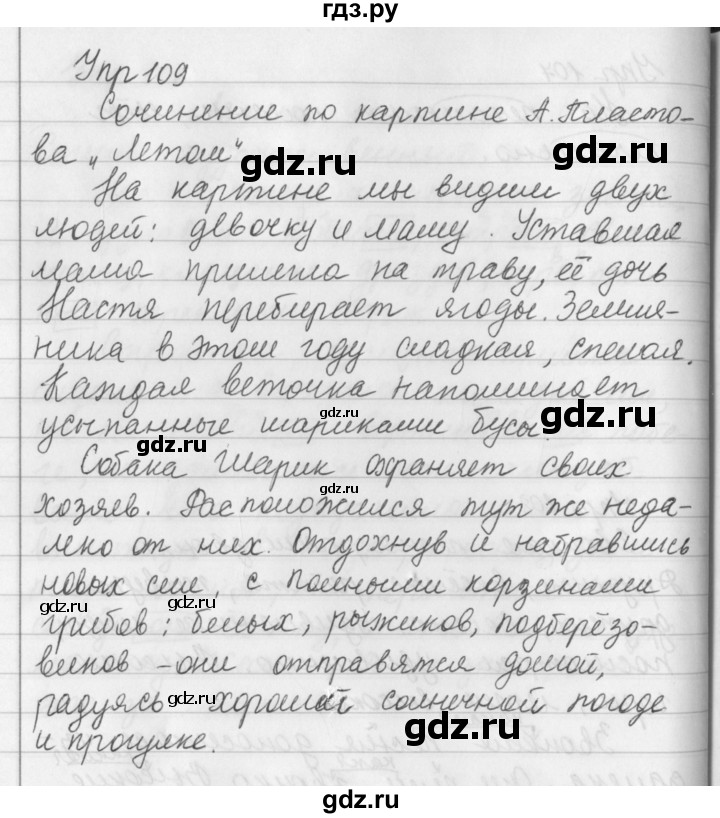 гдз.ру
Упр 109
Сочинение по картине А. Пласто-
ва „Летом“
gdz.ru
На картине мы видим двух
людей: девочку и маму. Уставшая
мама прилегла на траву, её дочь
Настя перебирает ягоды. Земля-
ника в этом году сладкая, спелая.
Каждая веточка напоминает
gdz.ru
усыпанные шариками бусы.
gdz.ru
gdz.ru
Собака Шарик охраняет своих
gdz.ru
хозяев. Расположился тут же неда-
леко от них. Отдохнув и набравшись
новых сил, с полными корзинами
gdz.ru
gdz.ru
грибов: белых, рыжиков, подберёзо-
виков – они отправятся домой,
gdz.ru
радуясь хорошей солнечной погоде
gdz.ru
и прогулке.
gdz.ru